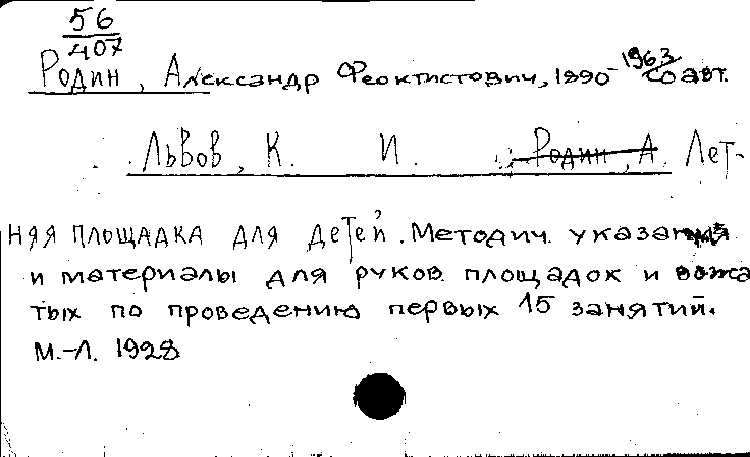 56
407
Родин, Александр Феоктистович, 1890-1963 соавт.
Львов, К. И. Родин, А. Лет-
няя площадка для детей. Методич. указания
и материалы для руков. площадок и вожа
тых по проведению первых 15 занятий.
М.-Л. 1928